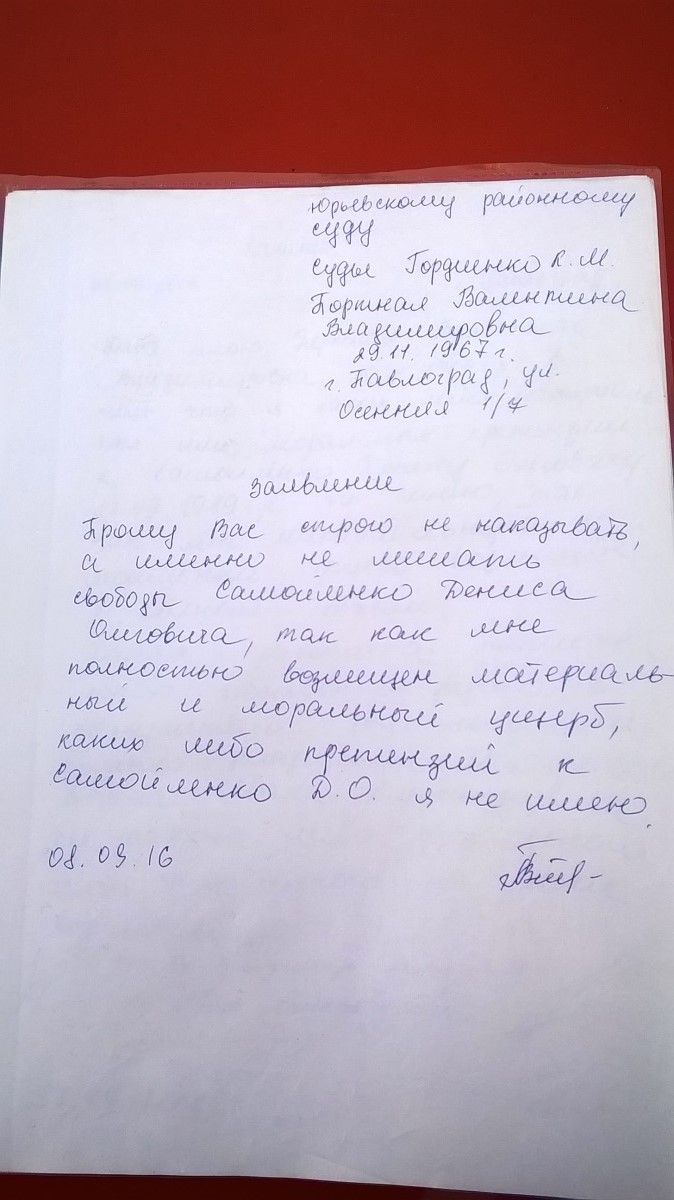 Юрьевскому районному
суду
Судье Гордиенко К.М.
Портная Валентина
Владимировна
29.11.1967г.
г. Павлоград, ул.
Осенняя 1/7
Заявление
Прошу Вас строго не наказывать,
а именно не лишать
свободы Самойленко Дениса
Олеговича, так как мне
полностью возмещен материаль-
ный и моральный ущерб,
каких либо претензий к
Самойленко Д.О. я не имею.
08.09.16